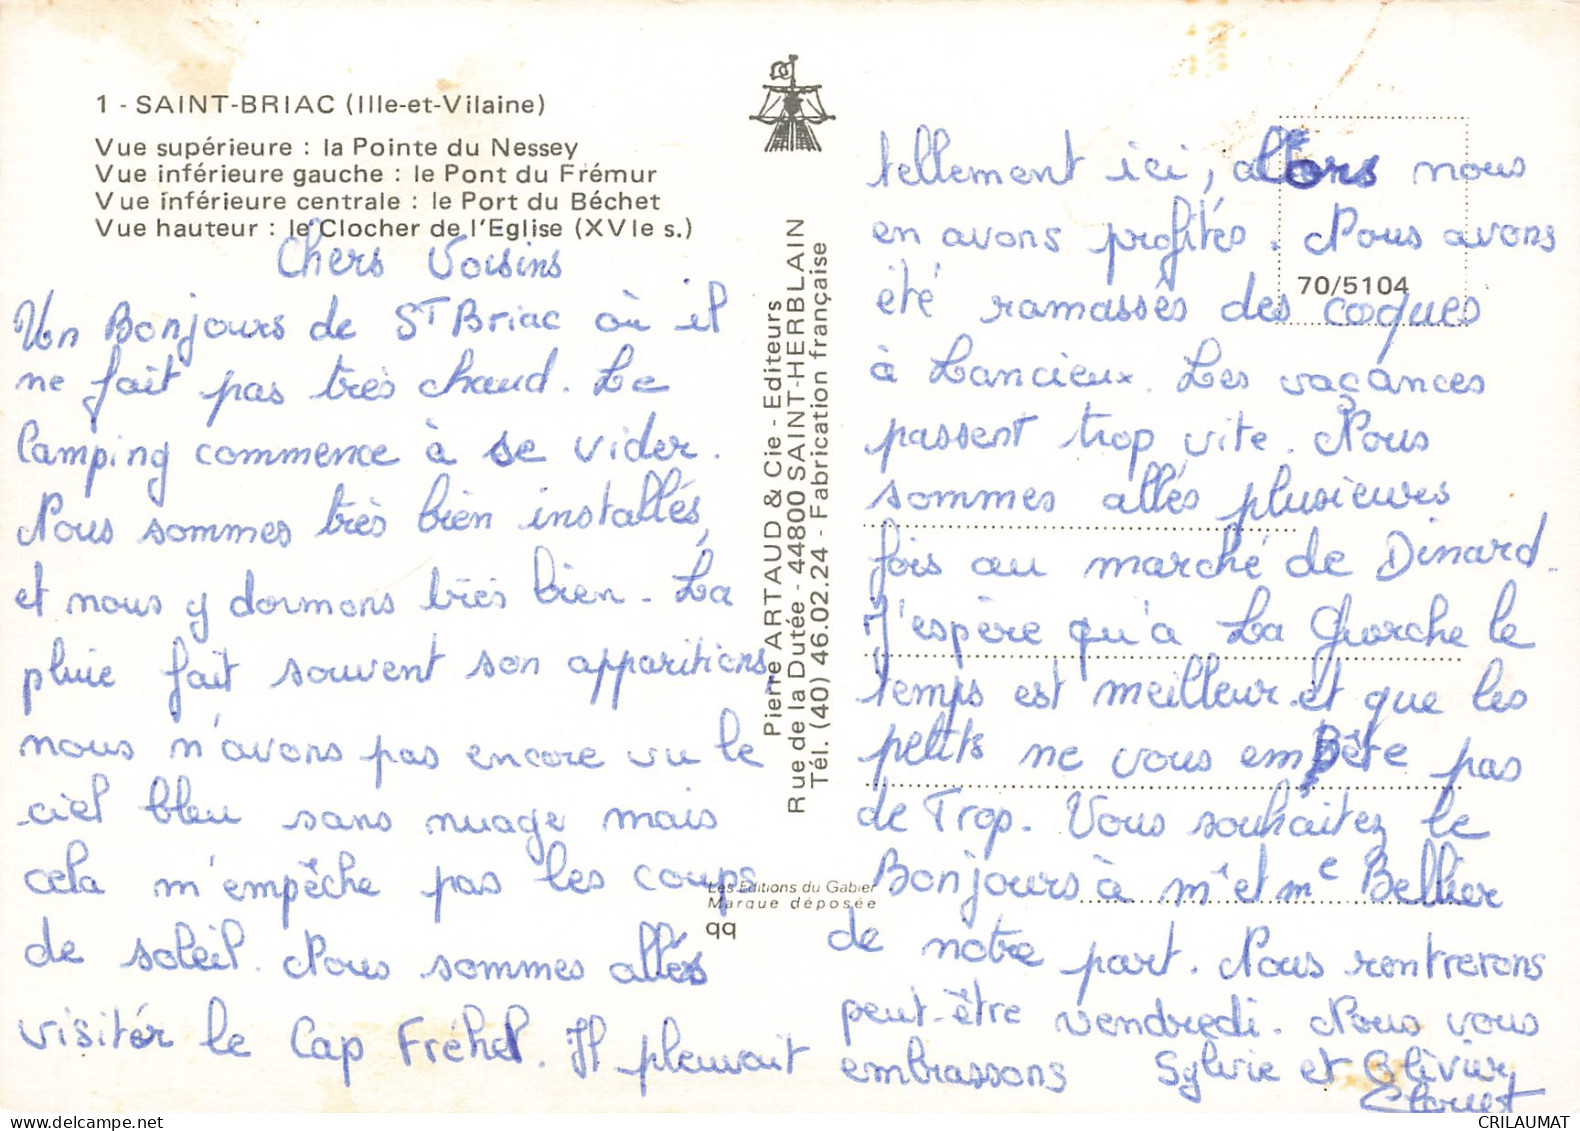 1 - SAINT-BRIAC (Ille-et-Vilaine)
Vue supérieure : la Pointe du Nessey
Vue inférieure gauche : le Pont du Frémur
Vue inférieure centrale : le Port du Béchet
Vue hauteur : le Clocher de l'Eglise (XVIe s.)
Chers Voisins
Un Bonjours de St Briac où il
ne fait pas très chaud. Le
Camping commence à se vider.
Nous sommes très bien installés,
et nous y dormons très bien. La
pluie fait souvent son apparitions
nous n'avons pas encore vu le
ciel bleu sans nuage mais
cela m'empêche pas les coups
de soleil. Nous sommes allés
visiter le Cap Fréhel. Il pleuvait
Pierre ARTAUD & Cie - Editeurs
Rue de la Dutée - 44800 SAINT-HERBLAIN
Tél. (40) 46.02.24 - Fabrication française
Les Editions du Gabier
Marque déposée
qq
70/5104
tellement ici, alors nous
en avons profités. Nous avons
été ramassés des coques
à Lancieux. Les vacances
passent trop vite. Nous
sommes allés plusieurs
fois au marché de Dinard.
J'espère qu'à La Guerche le
temps est meilleur et que les
petits ne vous emBête pas
de Trop. Vous souhaitez le
Bonjours à mr et me Bellier
de notre part. Nous rentrerons
peut-être vendredi. Nous vous
embrassons Sylvie et Olivier
CRILAUMAT